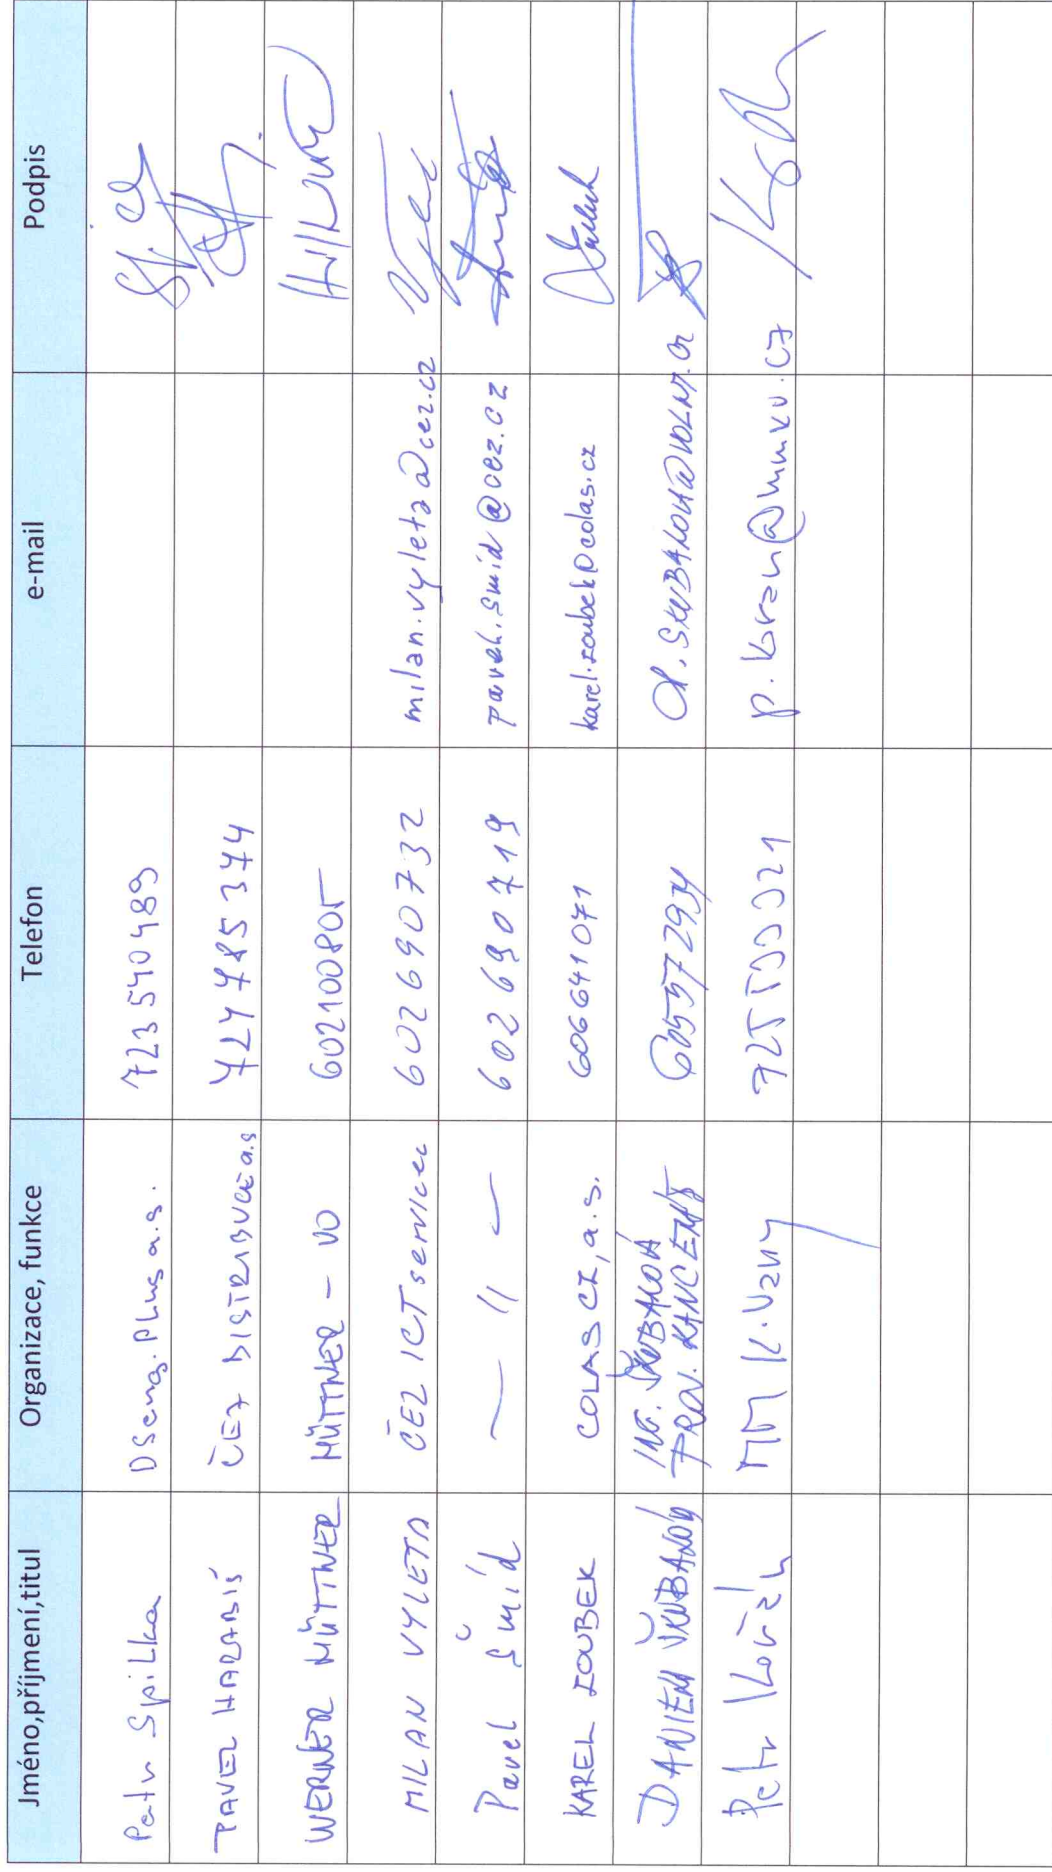 Jméno,příjmení,titul Organizace, funkce Telefon e-mail Podpis
Petr Spilka DSeng.Plus a.s. 723 540 489
PAVEL HARABIŠ ČEZ DISTRIBUCE a.s 724 785 374
WERNER HÜTTNER HÜTTNER - VO 602100805
MILAN VYLETA ČEZ ICT services 602690732 milan.vyleta@cez.cz
Pavel Šmíd — 11 — 602 690 719 pavel.smid@cez.cz
KAREL ZOUBEK COLAS CZ, a.s. 606641071 karel.zoubek@colas.cz
ING. ŠKUBALOVÁ
DANIELA ŠKUBALOVÁ PROJ. KANCELÁŘ 605572934
Petr MM K.Vary